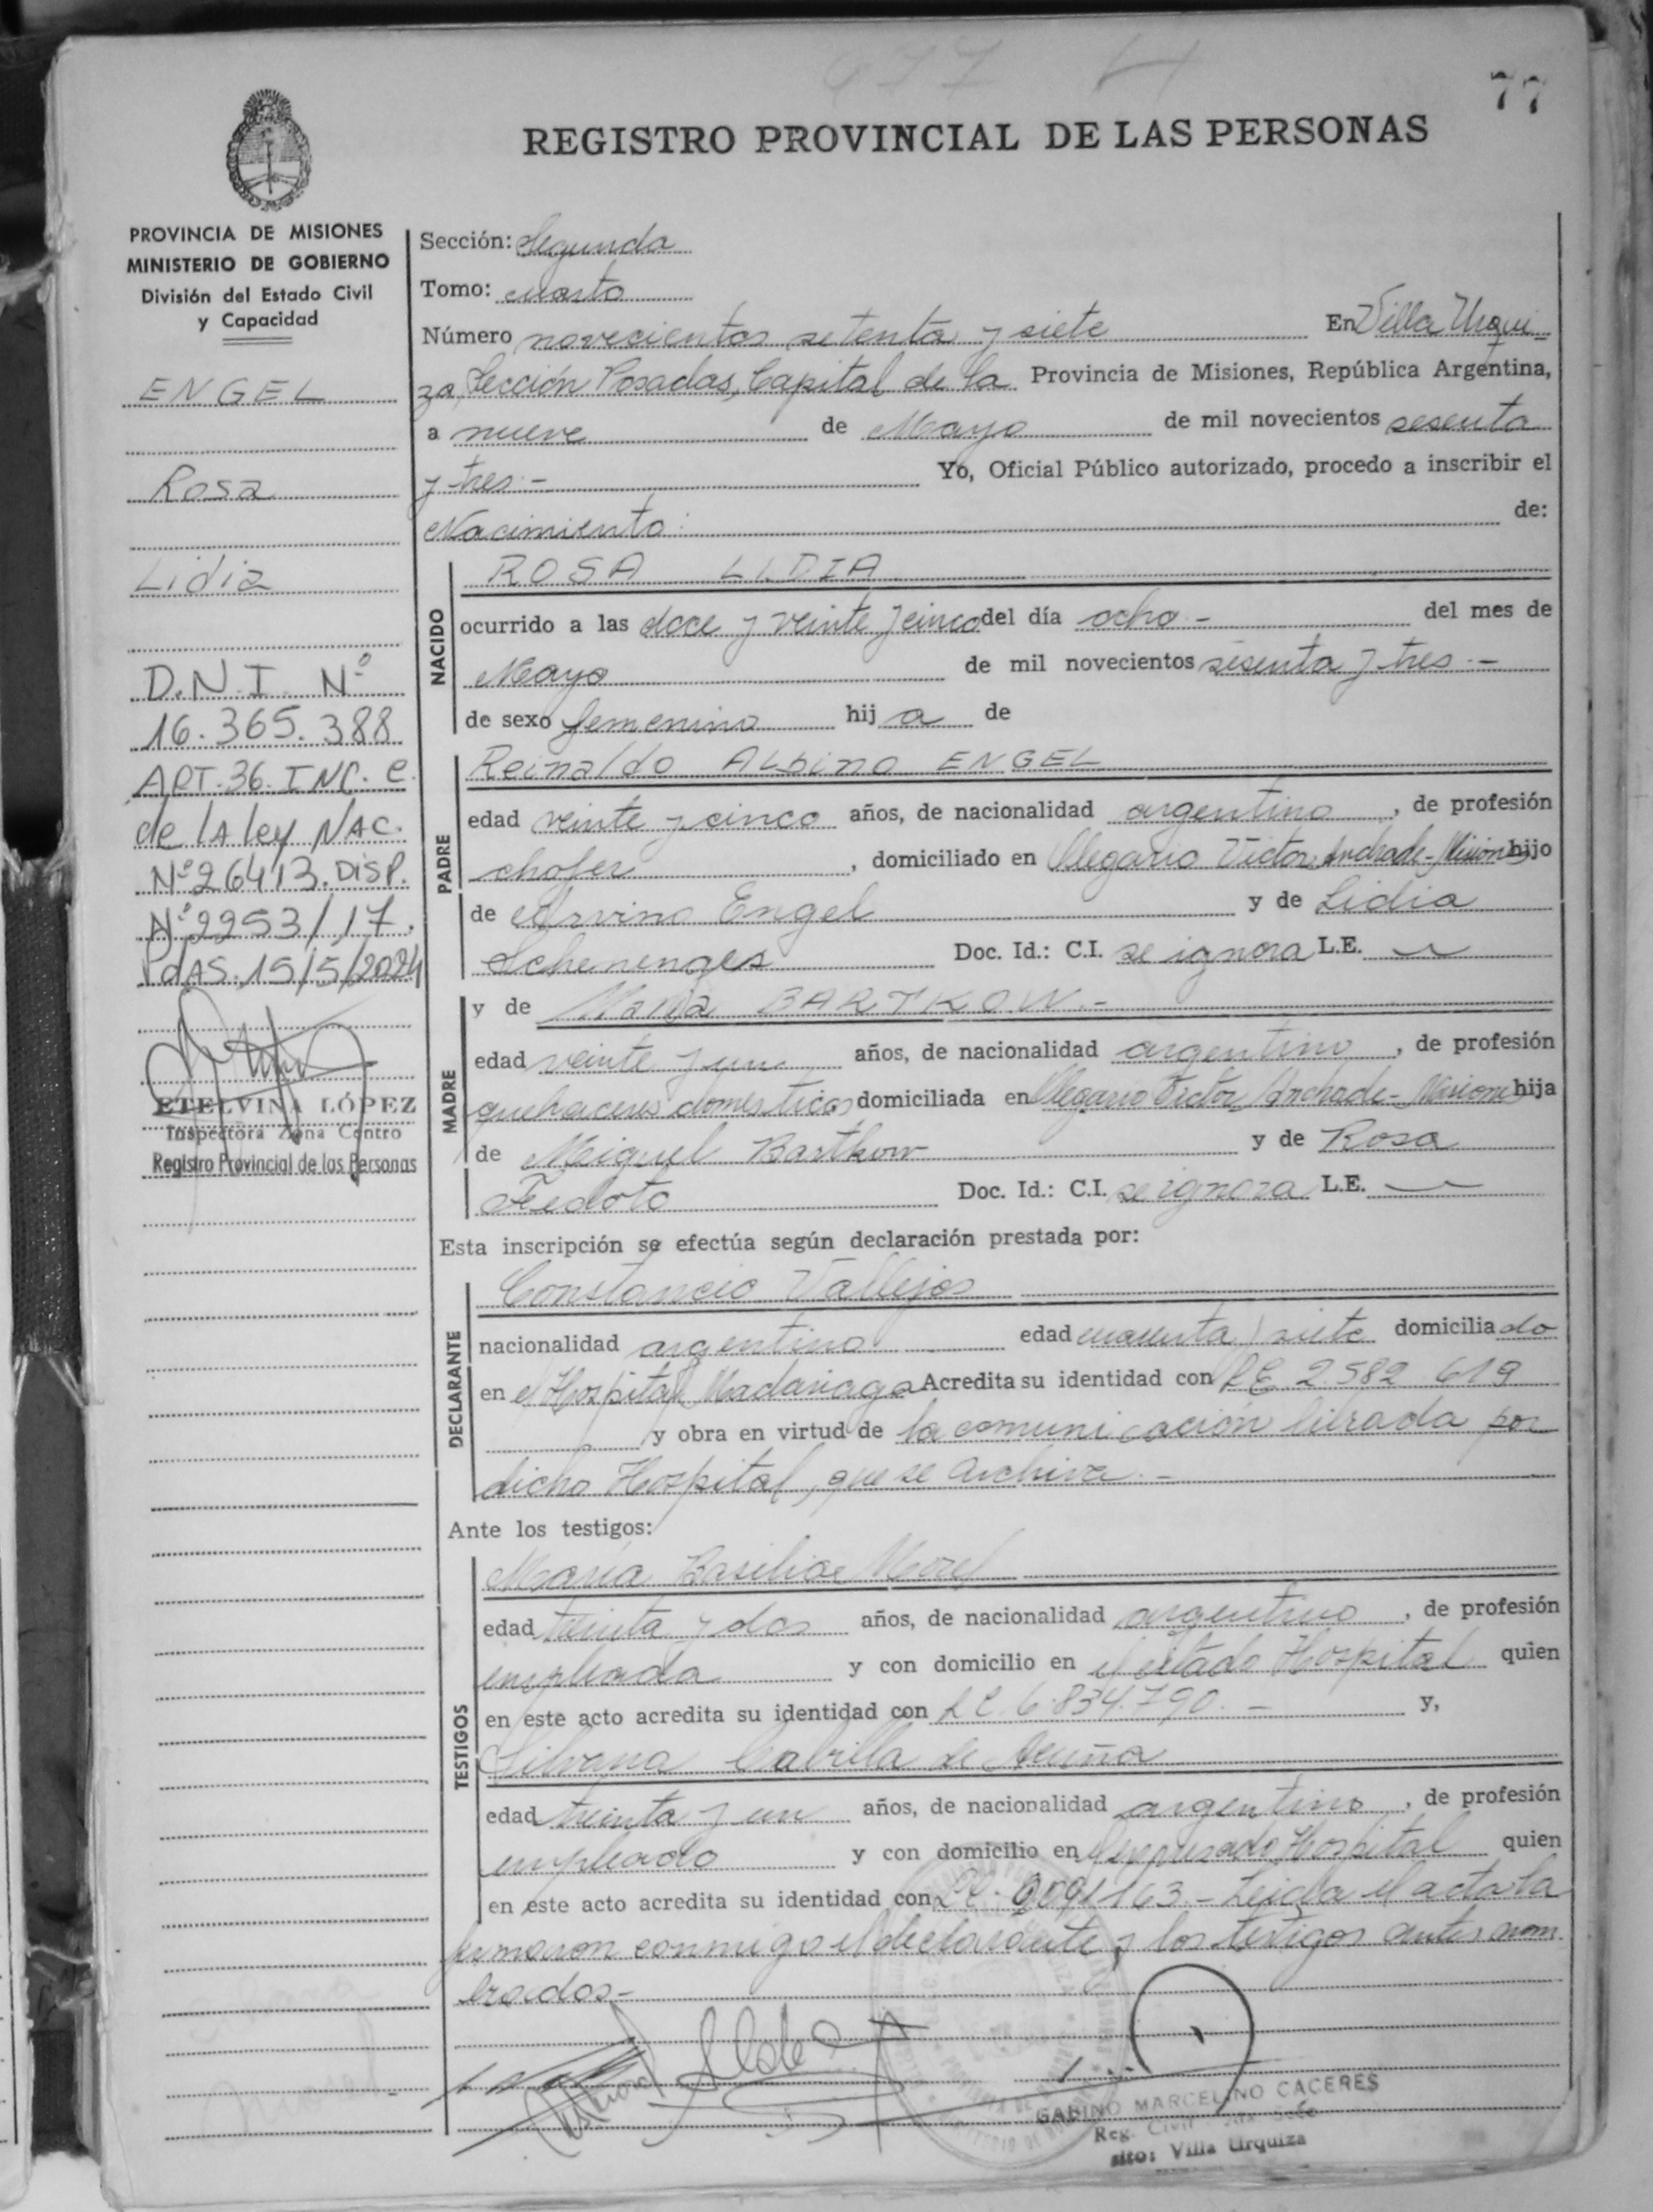 77
REGISTRO PROVINCIAL DE LAS PERSONAS
PROVINCIA DE MISIONES
MINISTERIO DE GOBIERNO
División del Estado Civil
y Capacidad
ENGEL
Rosa
Lidia
D.N.I. Nº
16.365.388
ART.36.INC. C.
de lA ley NAC.
Nº26413.DISP.
Nº2253/17.
PdAS.15/5/2024
ETELVINA LÓPEZ
Inspectora Zona Centro
Registro Provincial de las Personas
Sección: Segunda
Tomo: cuarto
Número novecientos setenta y siete En Villa Urqui-
za, Sección Posadas, Capital de la Provincia de Misiones, República Argentina,
a nueve de Mayo de mil novecientos sesenta
y tres.- Yo, Oficial Público autorizado, procedo a inscribir el
Nacimiento: de:
NACIDO
ROSA LIDIA
ocurrido a las doce y veinte y cinco del día ocho.- del mes de
Mayo de mil novecientos sesenta y tres.-
de sexo femenino hij a de
PADRE
Reinaldo Albino ENGEL
edad veinte y cinco años, de nacionalidad argentino, de profesión
chofer, domiciliado en Olegario Victor Andrade-Misiones hijo
de Arvino Engel y de Lidia
Doc. Id.: C.I. se ignora L.E.
MADRE
y de Maria BARTKOW.-
edad veinte y un años, de nacionalidad argentino, de profesión
quehaceres domesticos domiciliada en Olegario Victor Andrade-Misiones hija
de Miguel Bartkow y de Rosa
Fedoto Doc. Id.: C.I. se ignora L.E.
Esta inscripción se efectúa según declaración prestada por:
DECLARANTE
Constancio Vallejos
nacionalidad argentino edad cuarenta y siete domicilia do
en el Hospital Madariaga Acredita su identidad con L.E. 2.582.619
y obra en virtud de la comunicación librada por
dicho Hospital, que se archiva.-
Ante los testigos:
TESTIGOS
María Basilia Morel
edad treinta y dos años, de nacionalidad argentino, de profesión
empleada y con domicilio en el citado Hospital quien
en este acto acredita su identidad con L.C. 6.834.790.- y,
Silvana de Acuña
edad treinta y un años, de nacionalidad argentino, de profesión
empleado y con domicilio en el expresado Hospital quien
en este acto acredita su identidad con L.C. 9091163.- Leida el acta la
firmaron conmigo el declarante y los testigos antes nom-
brados.-
GABINO MARCELINO CACERES
Reg. Civil
sito: Villa Urquiza